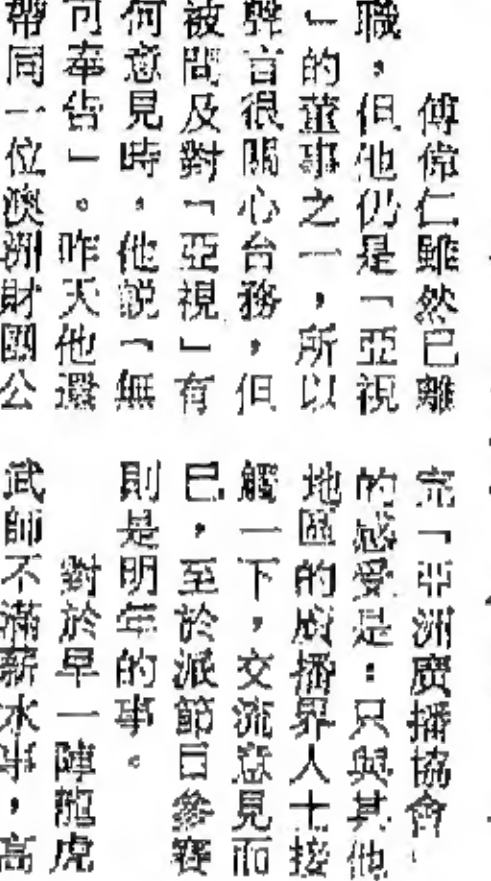 傅偉仁雖然已離
職,但他仍是「亞視
」的董事之一,所以
聲言很關心台務,但
被問及對「亞視」有
何意見時,他說「無
可奉告」。昨天他還
帶同一位澳洲財團公
完「亞洲廣播協會
的感受是:只與其他
地區的廣播界人士接
觸一下,交流意見而
已,至於派節目參賽
則是明年的事。
對於早一陣龍虎
武師不滿薪水事,高